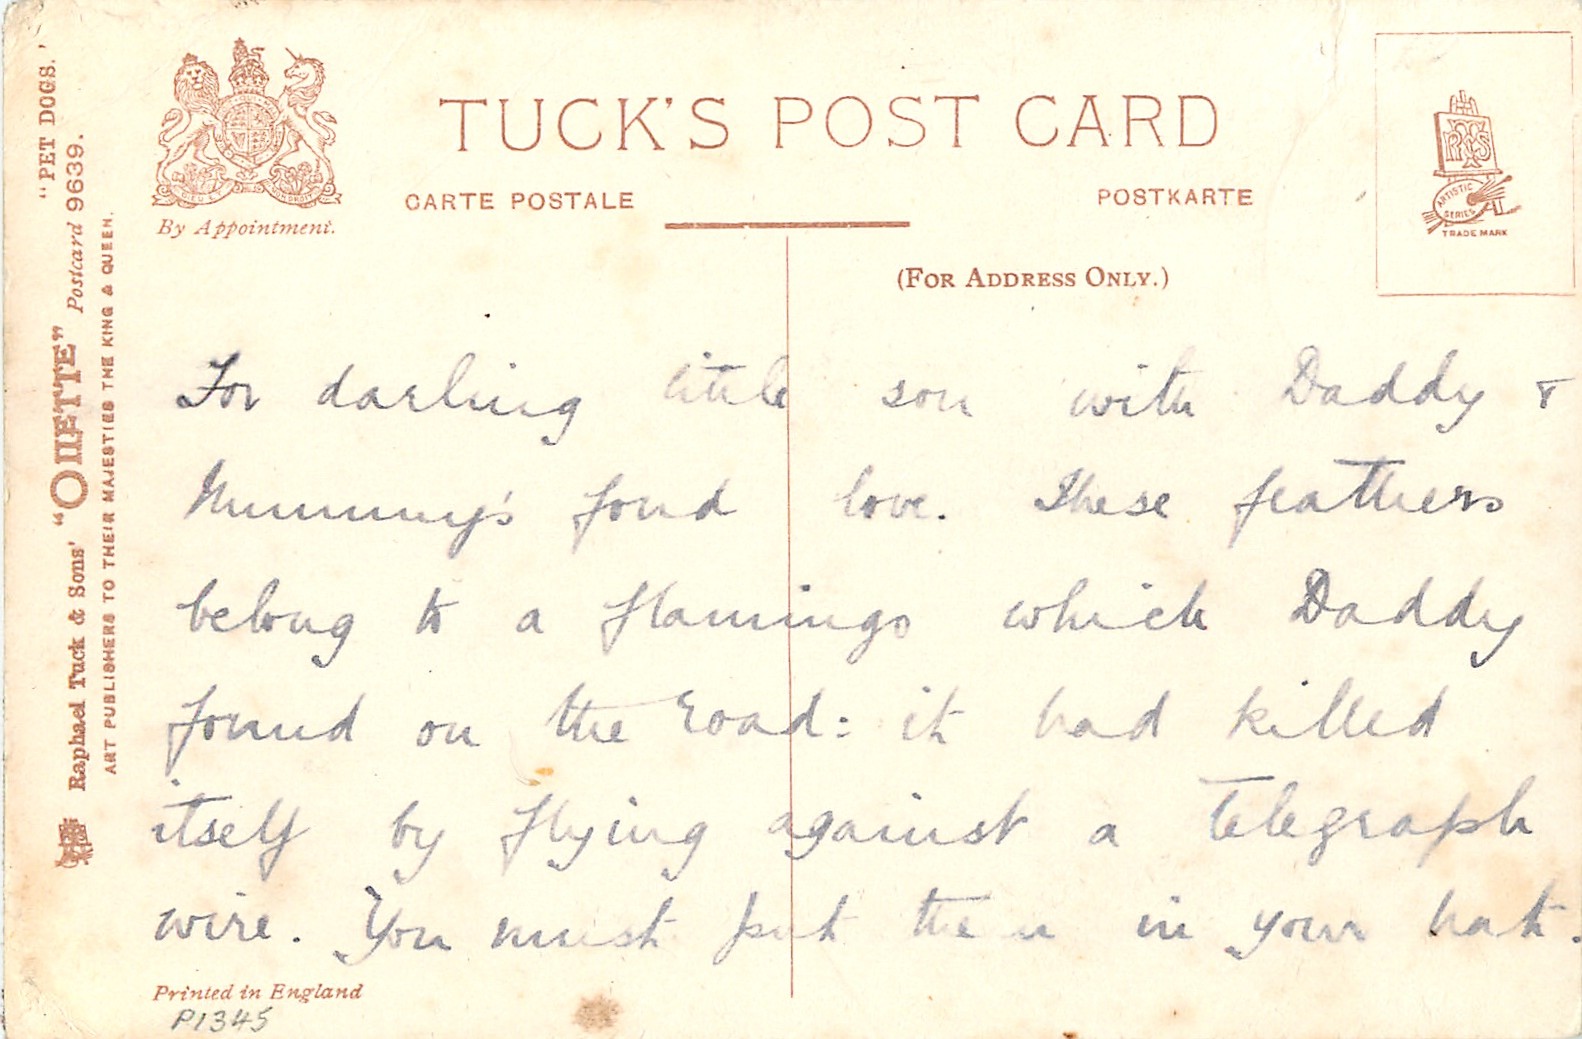 TUCK'S POST CARD
CARTE POSTALE
POSTKARTE
By Appointment.
(FOR ADDRESS ONLY.)
ARTISTIC
SERIES
TRADE MARK
"PET DOGS."
Raphael Tuck & Sons' "OILETTE" Postcard 9639.
ART PUBLISHERS TO THEIR MAJESTIES THE KING & QUEEN.
For darling little son with Daddy &
Mummy's fond love. These feathers
belong to a flamingo which Daddy
found on the road: it had killed
itself by flying against a Telegraph
wire. You must put them in your hat.
Printed in England
P1345